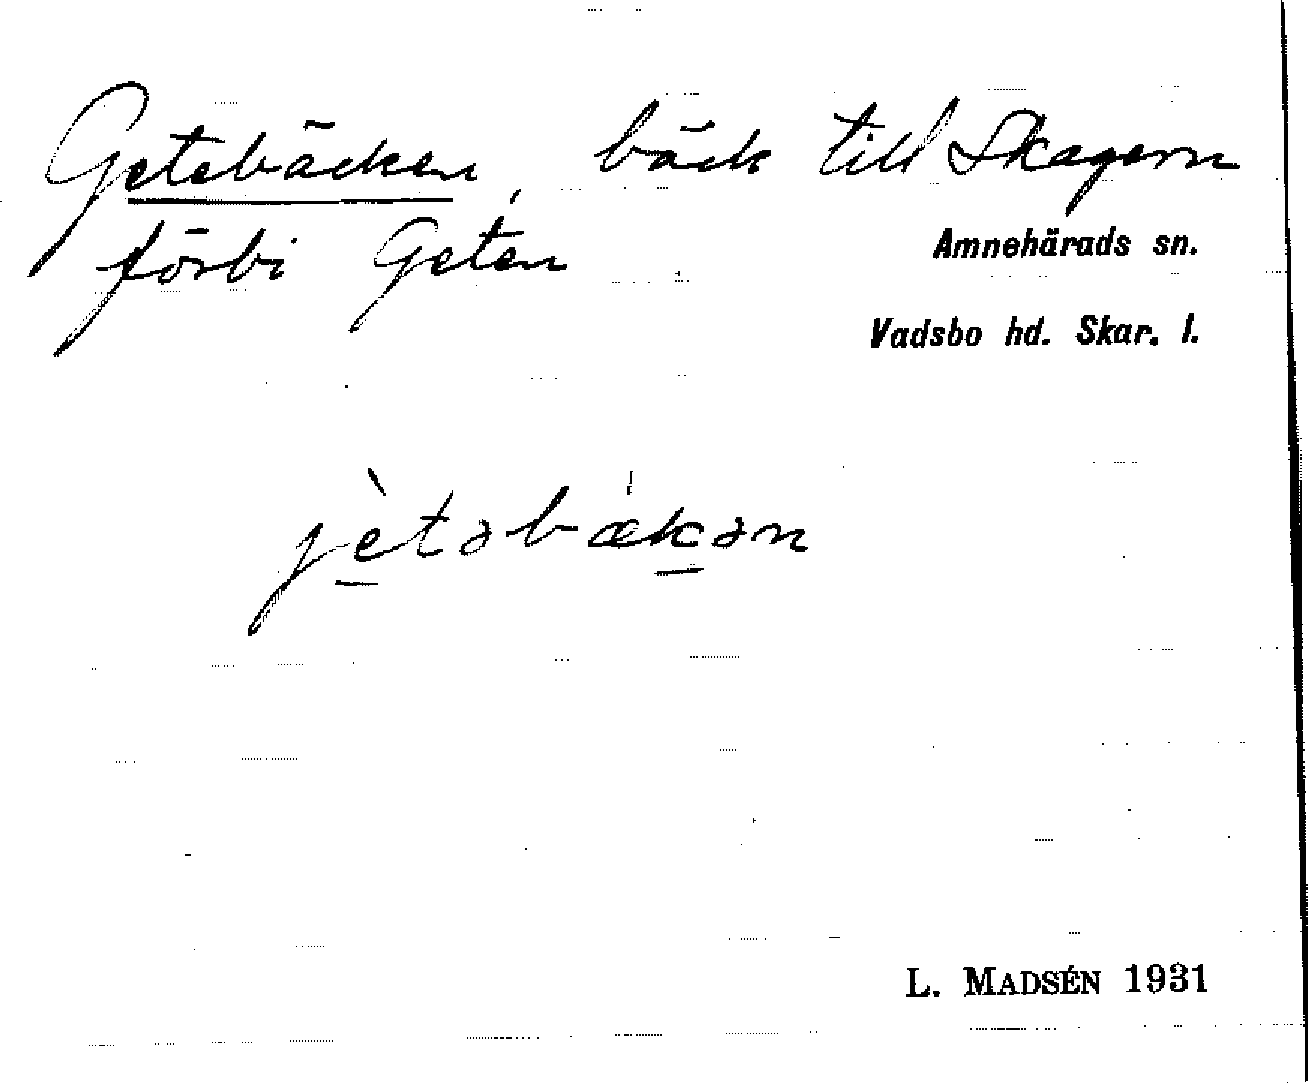 Getebäcken, bäck till Skagern
förbi Geten
Amnehärads sn.
Vadsbo hd. Skar. l.
jètəbækən
L. MADSÉN 1931